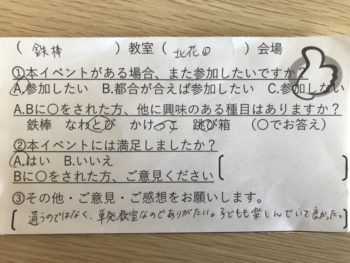 ( 鉄棒 )教室( 北花田 )会場
①本イベントがある場合、また参加したいですか？
A.参加したい B.都合が合えば参加したい C.参加しない
A.Bに〇をされた方、他に興味のある種目はありますか？
鉄棒 なわとび かけっこ 跳び箱 (〇でお答え)
②本イベントには満足しましたか？
A.はい B.いいえ
Bに〇をされた方、ご意見ください
③その他・ご意見・ご感想をお願いします。
通うのではなく、単発教室なのでありがたい。子どもも楽しんでいて良かった。